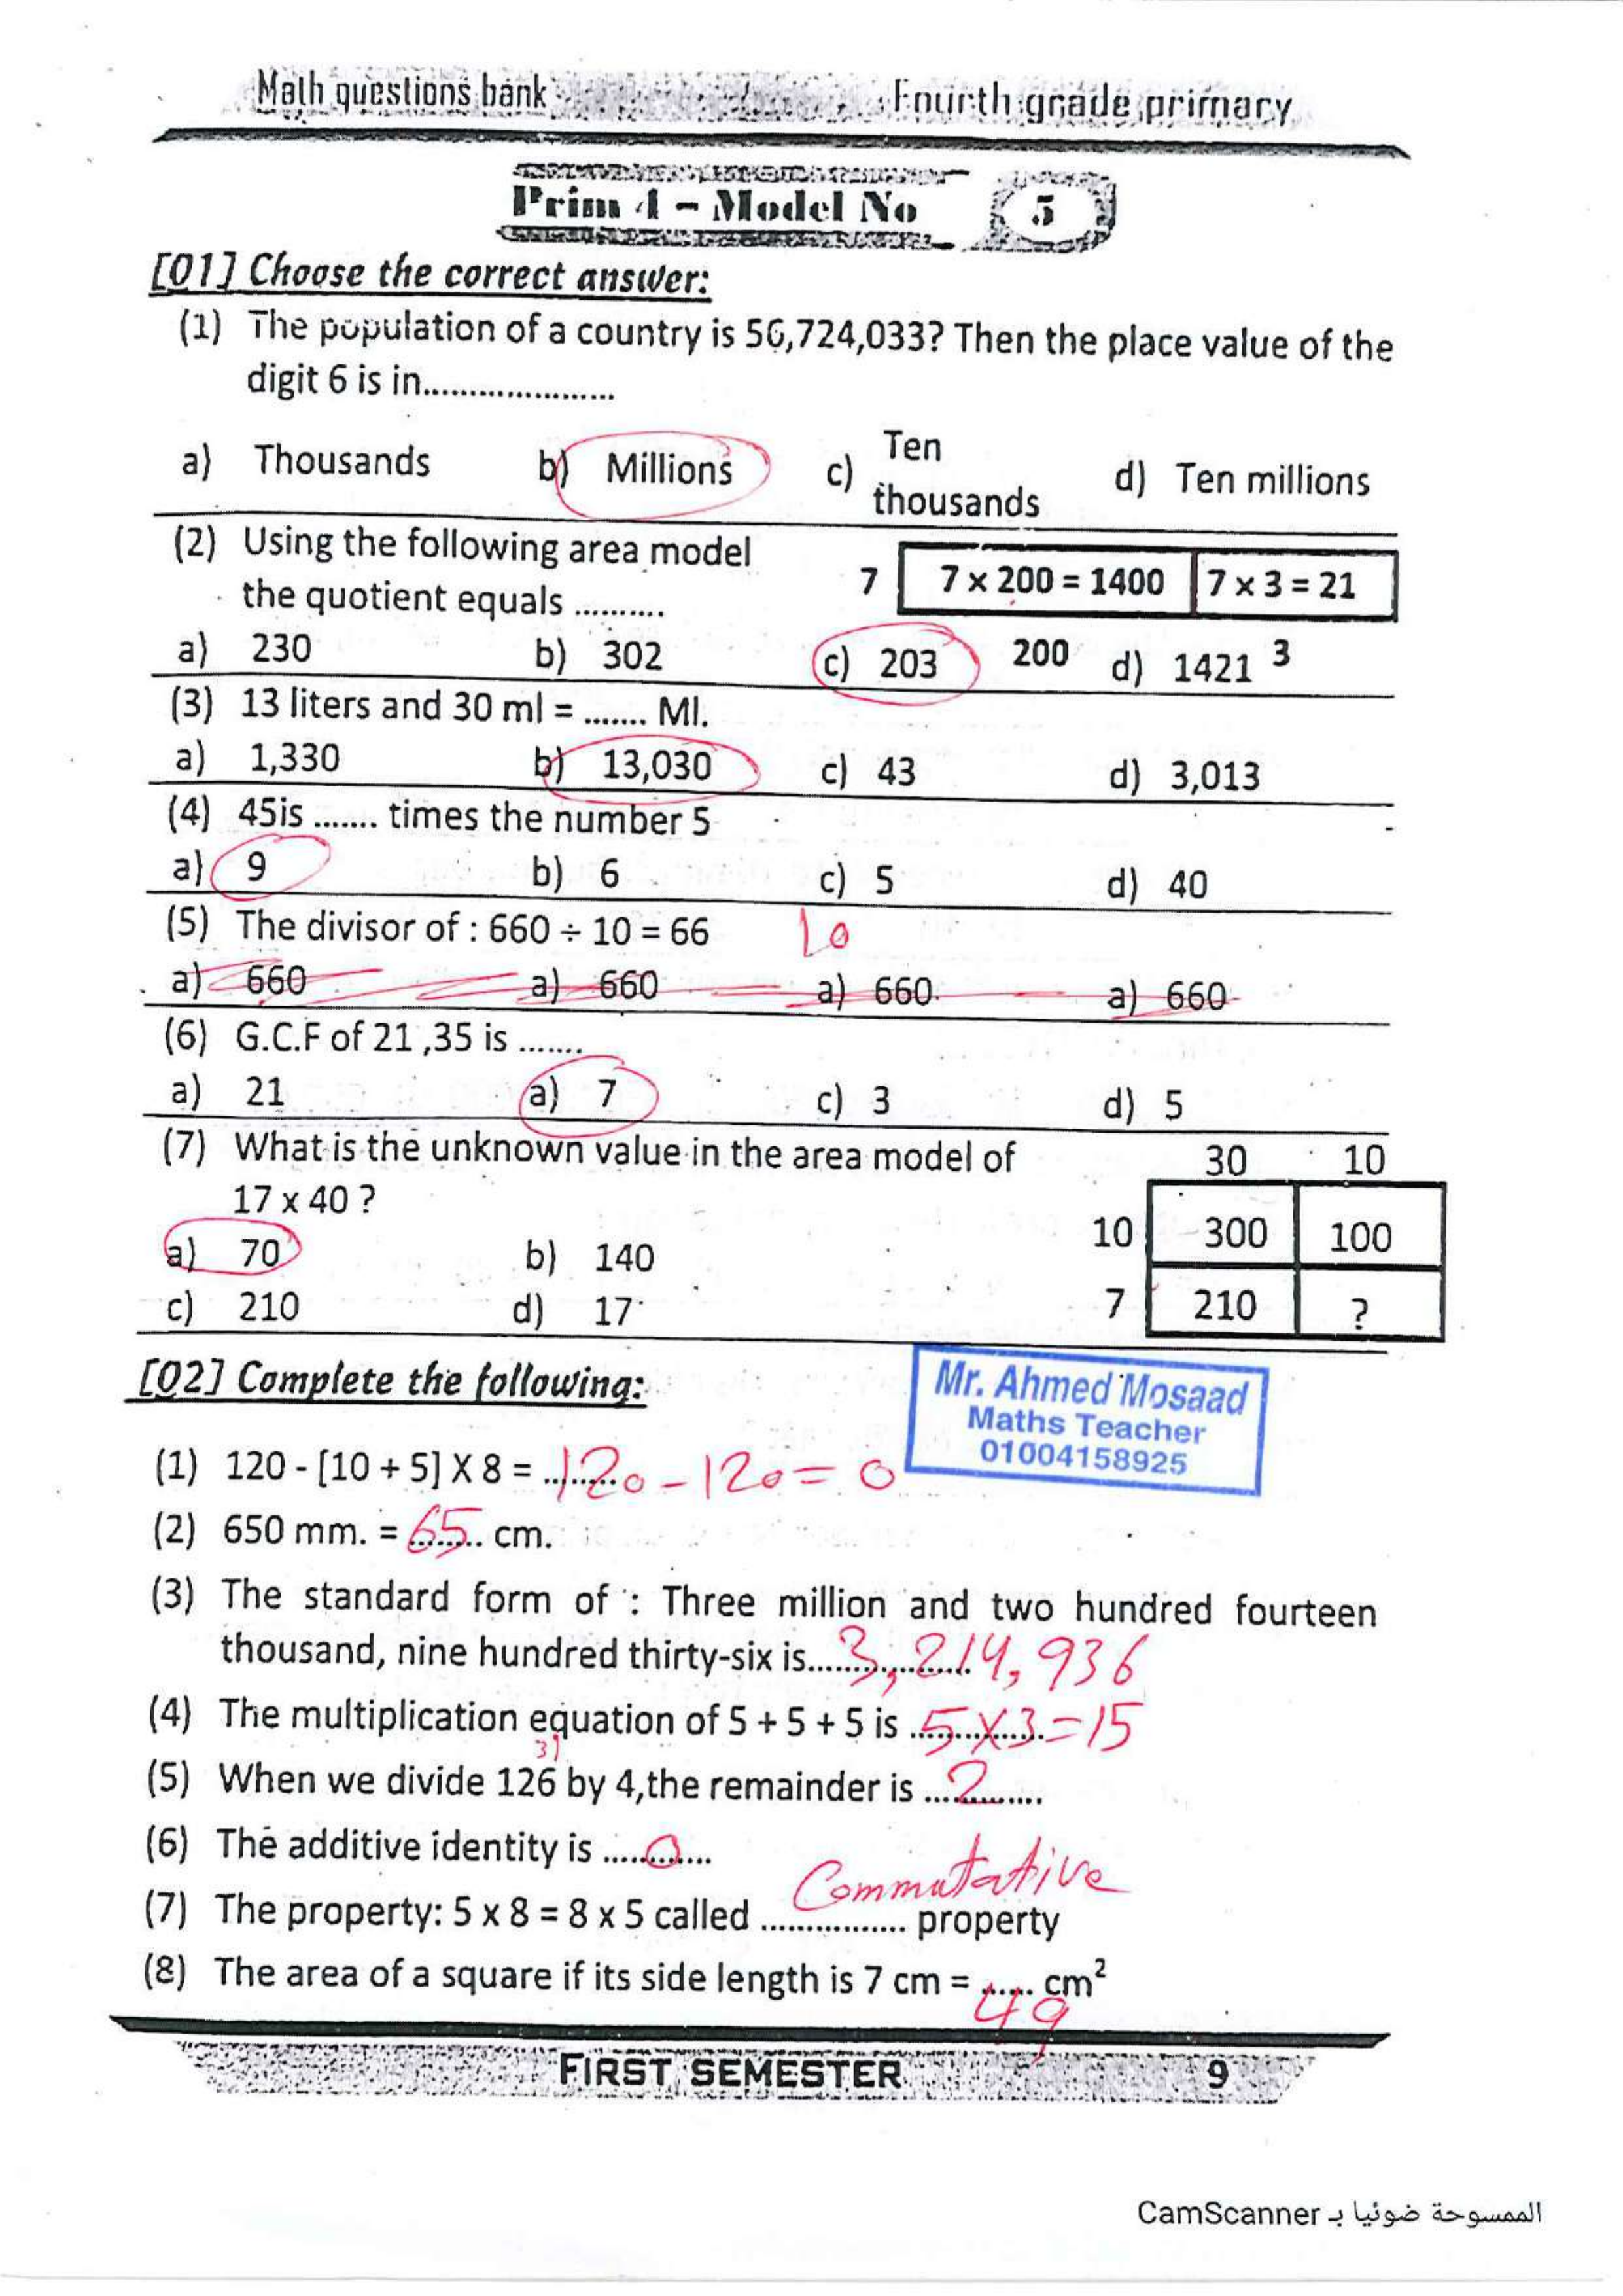 Math questions bank Fourth grade primary
Prim 4 - Model No 5
[Q1] Choose the correct answer:
(1) The population of a country is 56,724,033? Then the place value of the
digit 6 is in....................
a) Thousands b) Millions c) Ten thousands d) Ten millions
(2) Using the following area model
the quotient equals ..........
7 7 x 200 = 1400 7 x 3 = 21
200 3
a) 230 b) 302 c) 203 d) 1421
(3) 13 liters and 30 ml = ....... Ml.
a) 1,330 b) 13,030 c) 43 d) 3,013
(4) 45is ....... times the number 5
a) 9 b) 6 c) 5 d) 40
(5) The divisor of : 660 ÷ 10 = 66 10
a) 660 a) 660 a) 660 a) 660
(6) G.C.F of 21 ,35 is .......
a) 21 a) 7 c) 3 d) 5
(7) What is the unknown value in the area model of
17 x 40 ?
a) 70 b) 140
c) 210 d) 17
30 10
10 300 100
7 210 ?
[Q2] Complete the following:
Mr. Ahmed Mosaad
Maths Teacher
01004158925
(1) 120 - [10 + 5] X 8 = 120 - 120 = 0
(2) 650 mm. = 65 cm.
(3) The standard form of : Three million and two hundred fourteen
thousand, nine hundred thirty-six is 3,214,936
(4) The multiplication equation of 5 + 5 + 5 is 5 x 3 = 15
31
(5) When we divide 126 by 4,the remainder is 2
(6) The additive identity is 0
(7) The property: 5 x 8 = 8 x 5 called Commutative property
(8) The area of a square if its side length is 7 cm = 49 cm²
FIRST SEMESTER 9
الممسوحة ضوئيا بـ CamScanner